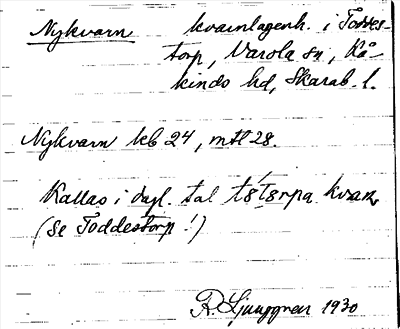 Nykvarn kvarnlägenh. i Toddes-
torp, Varola sn, Kå-
kinds hd, Skarab. l.
Nykvarn kb 24, mtl 28.
Kallas i dagl. tal
(Se Toddestorp!)
R. Ljunggren 1930